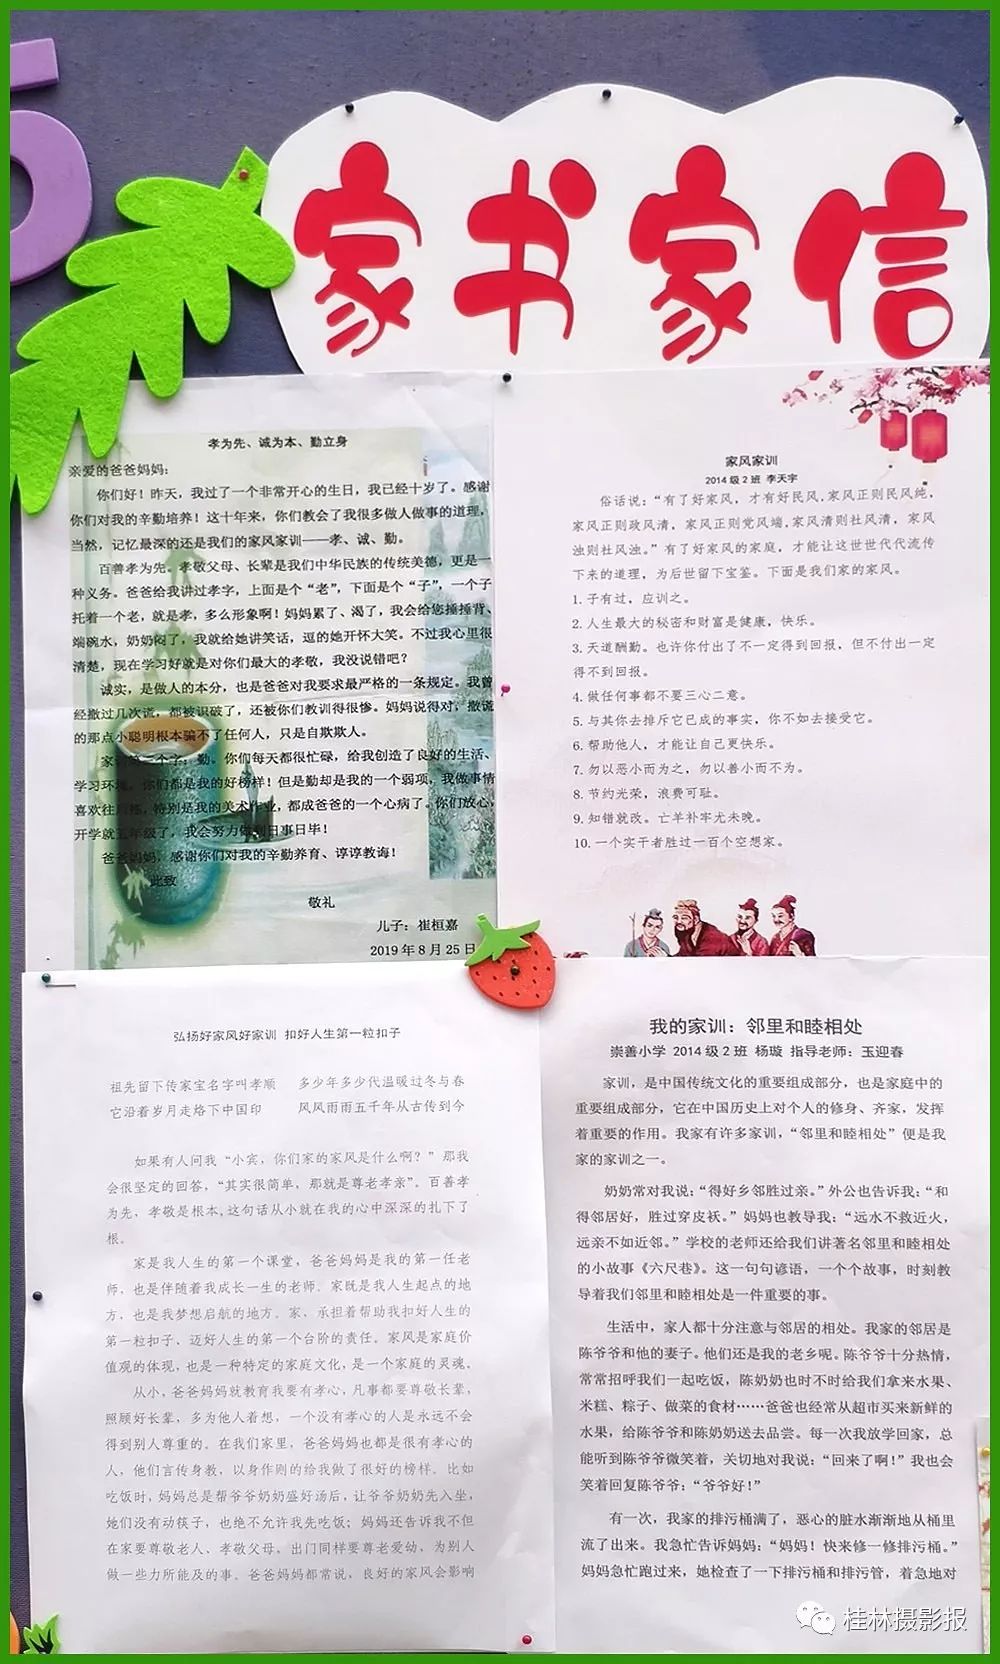 家书家信
孝为先、诚为本、勤立身
亲爱的爸爸妈妈:
你们好！昨天，我过了一个非常开心的生日，我已经十岁了。感谢
你们对我的辛勤培养！这十年来，你们教会了我很多做人做事的道理，
当然，记忆最深的还是我们的家风家训——孝、诚、勤。
百善孝为先。孝敬父母、长辈是我们中华民族的传统美德，更是一
种义务。爸爸给我讲过孝字，上面是个“老”，下面是个“子”，一个子
托着一个老，就是孝，多么形象啊！妈妈累了、渴了，我会给您捶捶背、
端碗水，奶奶闷了，我就给她讲笑话，逗的她开怀大笑。不过我心里很
清楚，现在学习好就是对你们最大的孝敬，我没说错吧？
诚实，是做人的本分，也是爸爸对我要求最严格的一条规定。我曾
经撒过几次谎，都被识破了，还被你们教训得很惨。妈妈说得对，撒谎
的那点小聪明根本骗不了任何人，只是自欺欺人。
家训第三个字：勤。你们每天都很忙碌，给我创造了良好的生活、
学习环境，你们都是我的好榜样！但是勤却是我的一个弱项，我做事情
喜欢往后拖，特别是我的美术作业，都成爸爸的一个心病了。你们放心，
开学就五年级了，我会努力做到日事日毕！
爸爸妈妈，感谢你们对我的辛勤养育、谆谆教诲！
此致
敬礼
儿子：崔桓嘉
2019年8月25日
家风家训
2014级2班 李天宇
俗话说：“有了好家风，才有好民风，家风正则民风纯，
家风正则政风清，家风正则党风端，家风清则社风清，家风
浊则社风浊。”有了好家风的家庭，才能让这世世代代流传
下来的道理，为后世留下宝鉴。下面是我们家的家风。
1.子有过，应训之。
2.人生最大的秘密和财富是健康，快乐。
3.天道酬勤。也许你付出了不一定得到回报，但不付出一定
得不到回报。
4.做任何事都不要三心二意。
5.与其你去排斥它已成的事实，你不如去接受它。
6.帮助他人，才能让自己更快乐。
7.勿以恶小而为之，勿以善小而不为。
8.节约光荣，浪费可耻。
9.知错就改。亡羊补牢尤未晚。
10.一个实干者胜过一百个空想家。
弘扬好家风好家训 扣好人生第一粒扣子
祖先留下传家宝名字叫孝顺 多少年多少代温暖过冬与春
它沿着岁月走烙下中国印 风风雨雨五千年从古传到今
如果有人问我“小宾，你们家的家风是什么啊？”那我
会很坚定的回答，“其实很简单，那就是尊老孝亲”。百善孝
为先，孝敬是根本,这句话从小就在我的心中深深的扎下了
根。
家是我人生的第一个课堂，爸爸妈妈是我的第一任老
师，也是伴随着我成长一生的老师。家既是我人生起点的地
方，也是我梦想启航的地方。家、承担着帮助我扣好人生的
第一粒扣子、迈好人生的第一个台阶的责任。家风是家庭价
值观的体现，也是一种特定的家庭文化，是一个家庭的灵魂。
从小，爸爸妈妈就教育我要有孝心，凡事都要尊敬长辈，
照顾好长辈，多为他人着想，一个没有孝心的人是永远不会
得到别人尊重的。在我们家里，爸爸妈妈也都是很有孝心的
人，他们言传身教，以身作则的给我做了很好的榜样。比如
吃饭时，妈妈总是帮爷爷奶奶盛好汤后，让爷爷奶奶先入坐，
她们没有动筷子，也绝不允许我先吃饭；妈妈还告诉我不但
在家要尊敬老人、孝敬父母，出门同样要尊老爱幼，为别人
做一些力所能及的事。爸爸妈妈都常说，良好的家风会影响
我的家训：邻里和睦相处
崇善小学 2014级2班 杨璇 指导老师：玉迎春
家训，是中国传统文化的重要组成部分，也是家庭中的
重要组成部分，它在中国历史上对个人的修身、齐家，发挥
着重要的作用。我家有许多家训，“邻里和睦相处”便是我
家的家训之一。
奶奶常对我说：“得好乡邻胜过亲。”外公也告诉我：“和
得邻居好，胜过穿皮袄。”妈妈也教导我：“远水不救近火，
远亲不如近邻。”学校的老师还给我们讲著名邻里和睦相处
的小故事《六尺巷》。这一句句谚语，一个个故事，时刻教
导着我们邻里和睦相处是一件重要的事。
生活中，家人都十分注意与邻居的相处。我家的邻居是
陈爷爷和他的妻子。他们还是我的老乡呢。陈爷爷十分热情，
常常招呼我们一起吃饭，陈奶奶也时不时给我们拿来水果、
米糕、粽子、做菜的食材……爸爸也经常从超市买来新鲜的
水果，给陈爷爷和陈奶奶送去品尝。每一次我放学回家，总
能听到陈爷爷微笑着，关切地对我说：“回来了啊！”我也会
笑着回复陈爷爷：“爷爷好！”
有一次，我家的排污桶满了，恶心的脏水渐渐地从桶里
流了出来。我急忙告诉妈妈：“妈妈！快来修一修排污桶。”
妈妈急忙跑过来，她检查了一下排污桶和排污管，着急地对
桂林摄影报